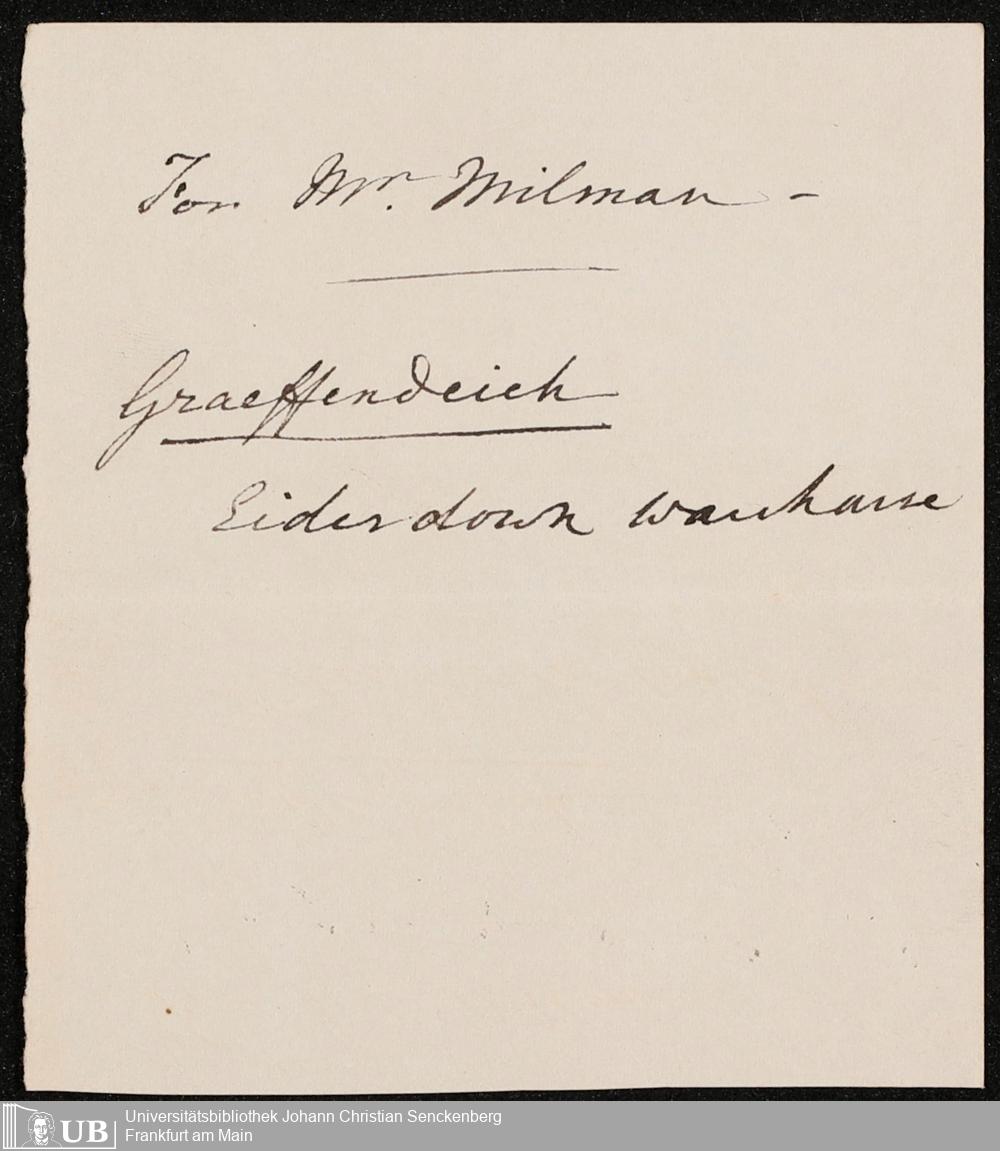 For Mr. Milman -
Graeffendeich
Eiderdown warehouse
UB
Universitätsbibliothek Johann Christian Senckenberg
Frankfurt am Main